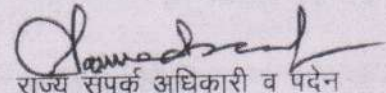 राज्य संपर्क अधिकारी व पदेन